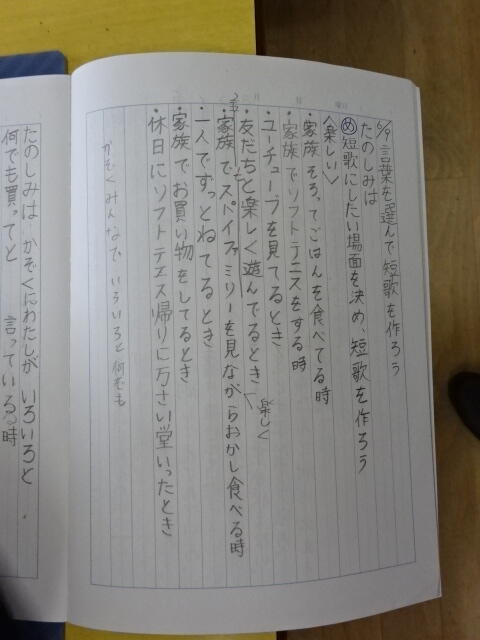 6/9 言葉を選んで短歌を作ろう
たのしみは
め 短歌にしたい場面を決め、短歌を作ろう
〈楽しい〉
・家族そろってごはんを食べてる時
・家族でソフトテニスをする時
・ユーチューブを見てるとき
・友だちと楽しく遊んでるとき
楽しく
・家族でスパイファミリーを見ながらおかし食べる時
・一人でずっとねてるとき
・家族でお買い物をしてるとき
・休日にソフトテニス帰りに万さい堂いったとき
かぞくみんなで いろいろと 何をも
たのしみは かぞくにわたしが いろいろと
何でも買ってと 言っている時